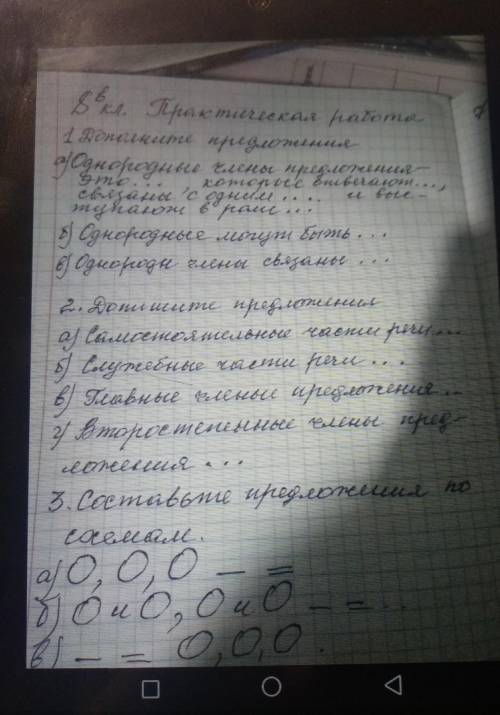 8 в кл. Практическая работа
1 Дополните предложения
а) Однородные члены предложения-
это... которые отвечают...,
связаны с одним .... и выс-
тупают в роли...
б) Однородные могут быть...
в) Однородн члены связаны ...
2. Допишите предложения
а) Самостоятельные части речи...
б) Служебные части речи...
в) Главные члены предложения...
г) Второстепенные члены пред-
ложения ...
3. Составьте предложения по
схемам.
а) О, О, О — =
б) О и О, О и О — = ..
в) — = О, О, О.